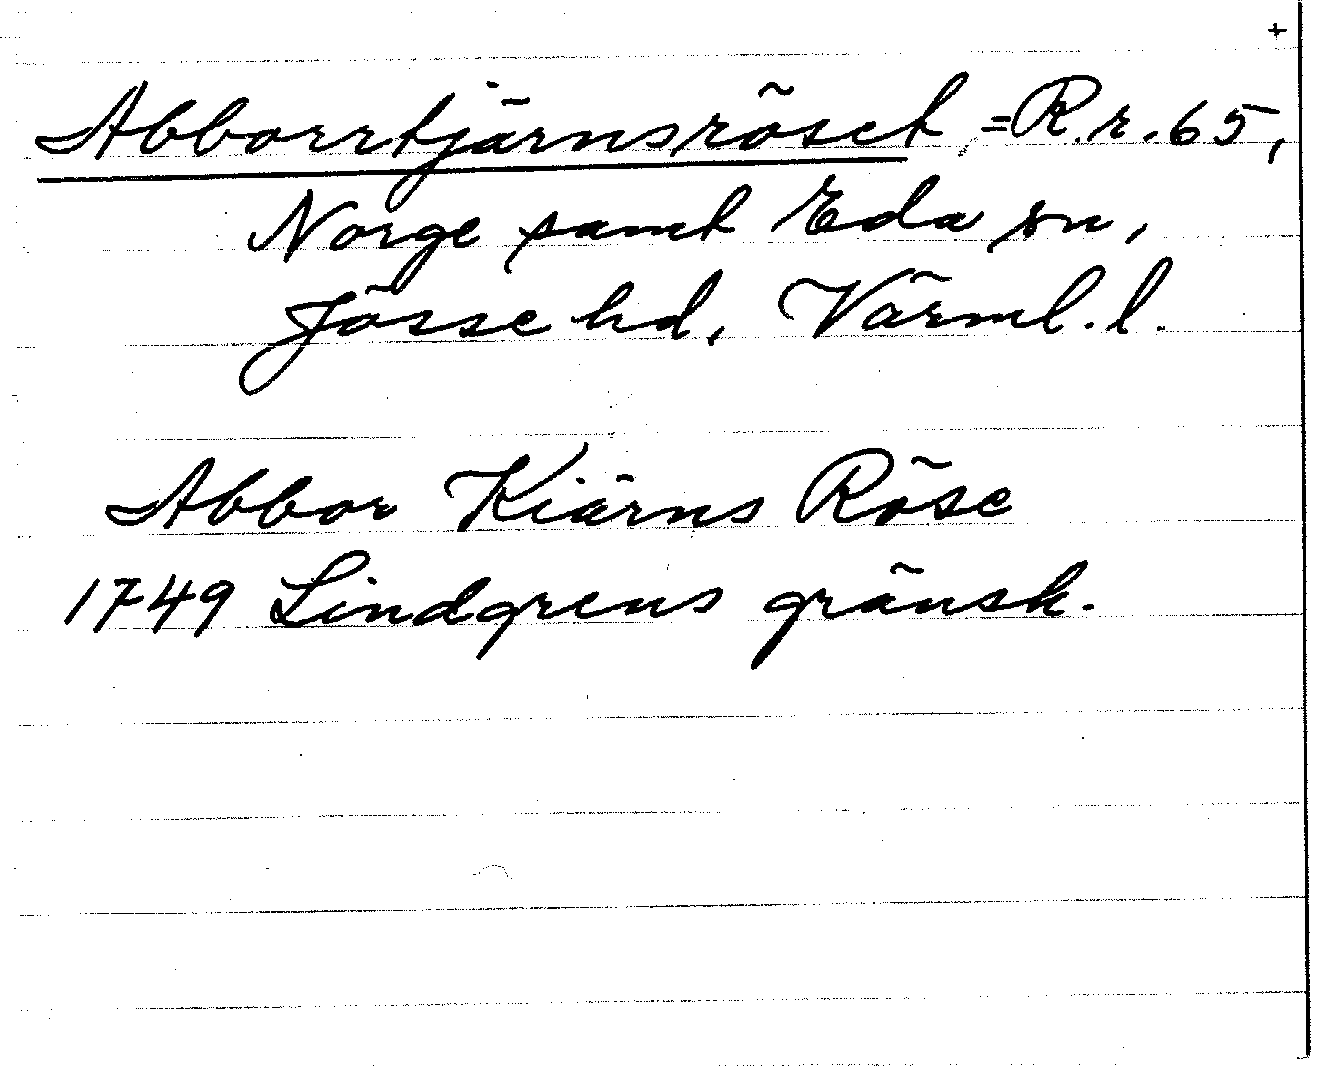 +
Abborrtjärnsröset, =R.r.65,
Norge samt Eda sn,
Jösse hd, Värml. l.
Abbor Kiärns Röse
1749 Lindgrens gränsk.